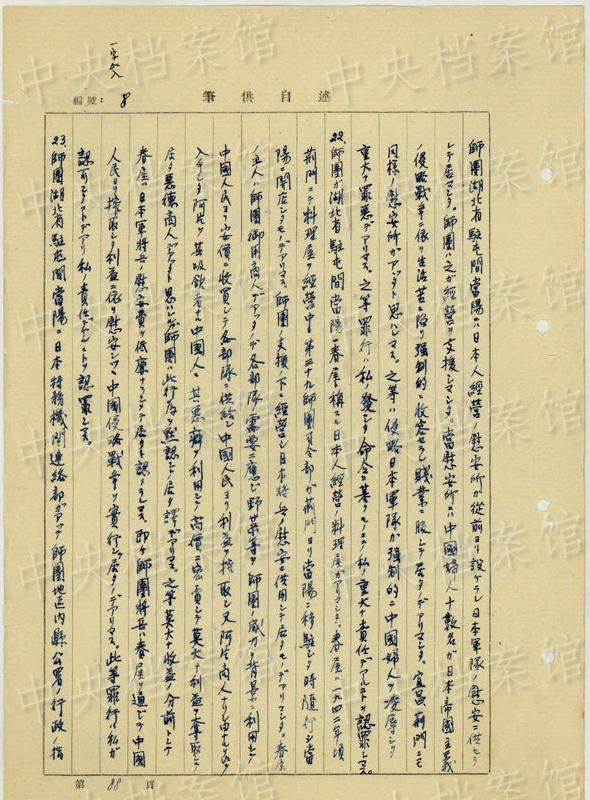 中央档案馆
一字加入
編號: 8
筆供自述
師團湖北省駐屯間當陽ニハ日本人經營ノ慰安所が從前ヨリ設ケラレ日本軍隊ノ慰安ニ供セラ
レテ居マシタ。師團ハ之が經營ヲ支援シマシタ。當慰安所ニハ中國婦人十數名が日本帝國主義
ノ侵略戰爭ニ依リ生活苦ニ陷リ強制的ニ收容セラレ賤業ニ服シテ居タノデアリマシタ。宜昌荊門ニモ
同様ノ慰安所がアッタト思ハレマス。之等ハ侵略日本軍隊が強制的ニ中國婦人ヲ凌辱シタ
重大ナ罪惡デアリマス。之等罪行ハ私ノ發シタ命令ニ基クモノニシテ私ノ重大ナ責任デアルコトヲ認罪シマス。
22. 師團が湖北省駐屯間當陽ニ春屋ト稱スル日本人經營ノ料理屋がアリマシタ。春屋ハ一九四二年頃
荊門ニテ料理屋ヲ經營中第三十九師團司令部が荊門ヨリ當陽ニ移駐シタ時隨行シ當
陽ニ開店シタモノデアリマス。師團ノ支援ノ下ニ經營シ日本將兵ノ慰安ニ供用シテ居タモノデアリマシタ。春屋
ノ主人ハ師團御用商人デアッタノデ各部隊ノ需要ニ應ジ野菜等ヲ師團ノ威力ヲ背景ニ利用シテ
中國人民ヨリ安價ニ收買シテ各部隊ニ供給シ中國人民ヨリ利益ヲ搾取シ又阿片商人ナリシ由ナルヲ以テ
入手シタ阿片ヲ其吸飲者タル中國人ニ其惡癖ヲ利用シテ高價ニ密賣シテ莫大ナ利益ヲ奪取シテ
居タ惡德商人デアッタト思ハレ師團ハ此行為ヲ默認シテ居タ譯デアリマス。之等莫大ナ收益ノ分前トシテ
春屋ハ日本軍將兵ノ慰安費ヲ低廉ナラシメテ居タト認メラレマス。即チ師團將兵ハ春屋ヲ通ジテ中國
人民ヨリ搾取シタ利益ニ依リ慰安シツツ中國侵略戰爭ヲ實行シテ居タノデアリマス。此等罪行ハ私が
認可シタコトデアリ私ノ責任デアルコトヲ認罪シマス。
23. 師團湖北省駐屯間當陽ニ日本特務機関連絡部がアッテ師團地区内縣公署ノ行政ノ指
第 88 頁